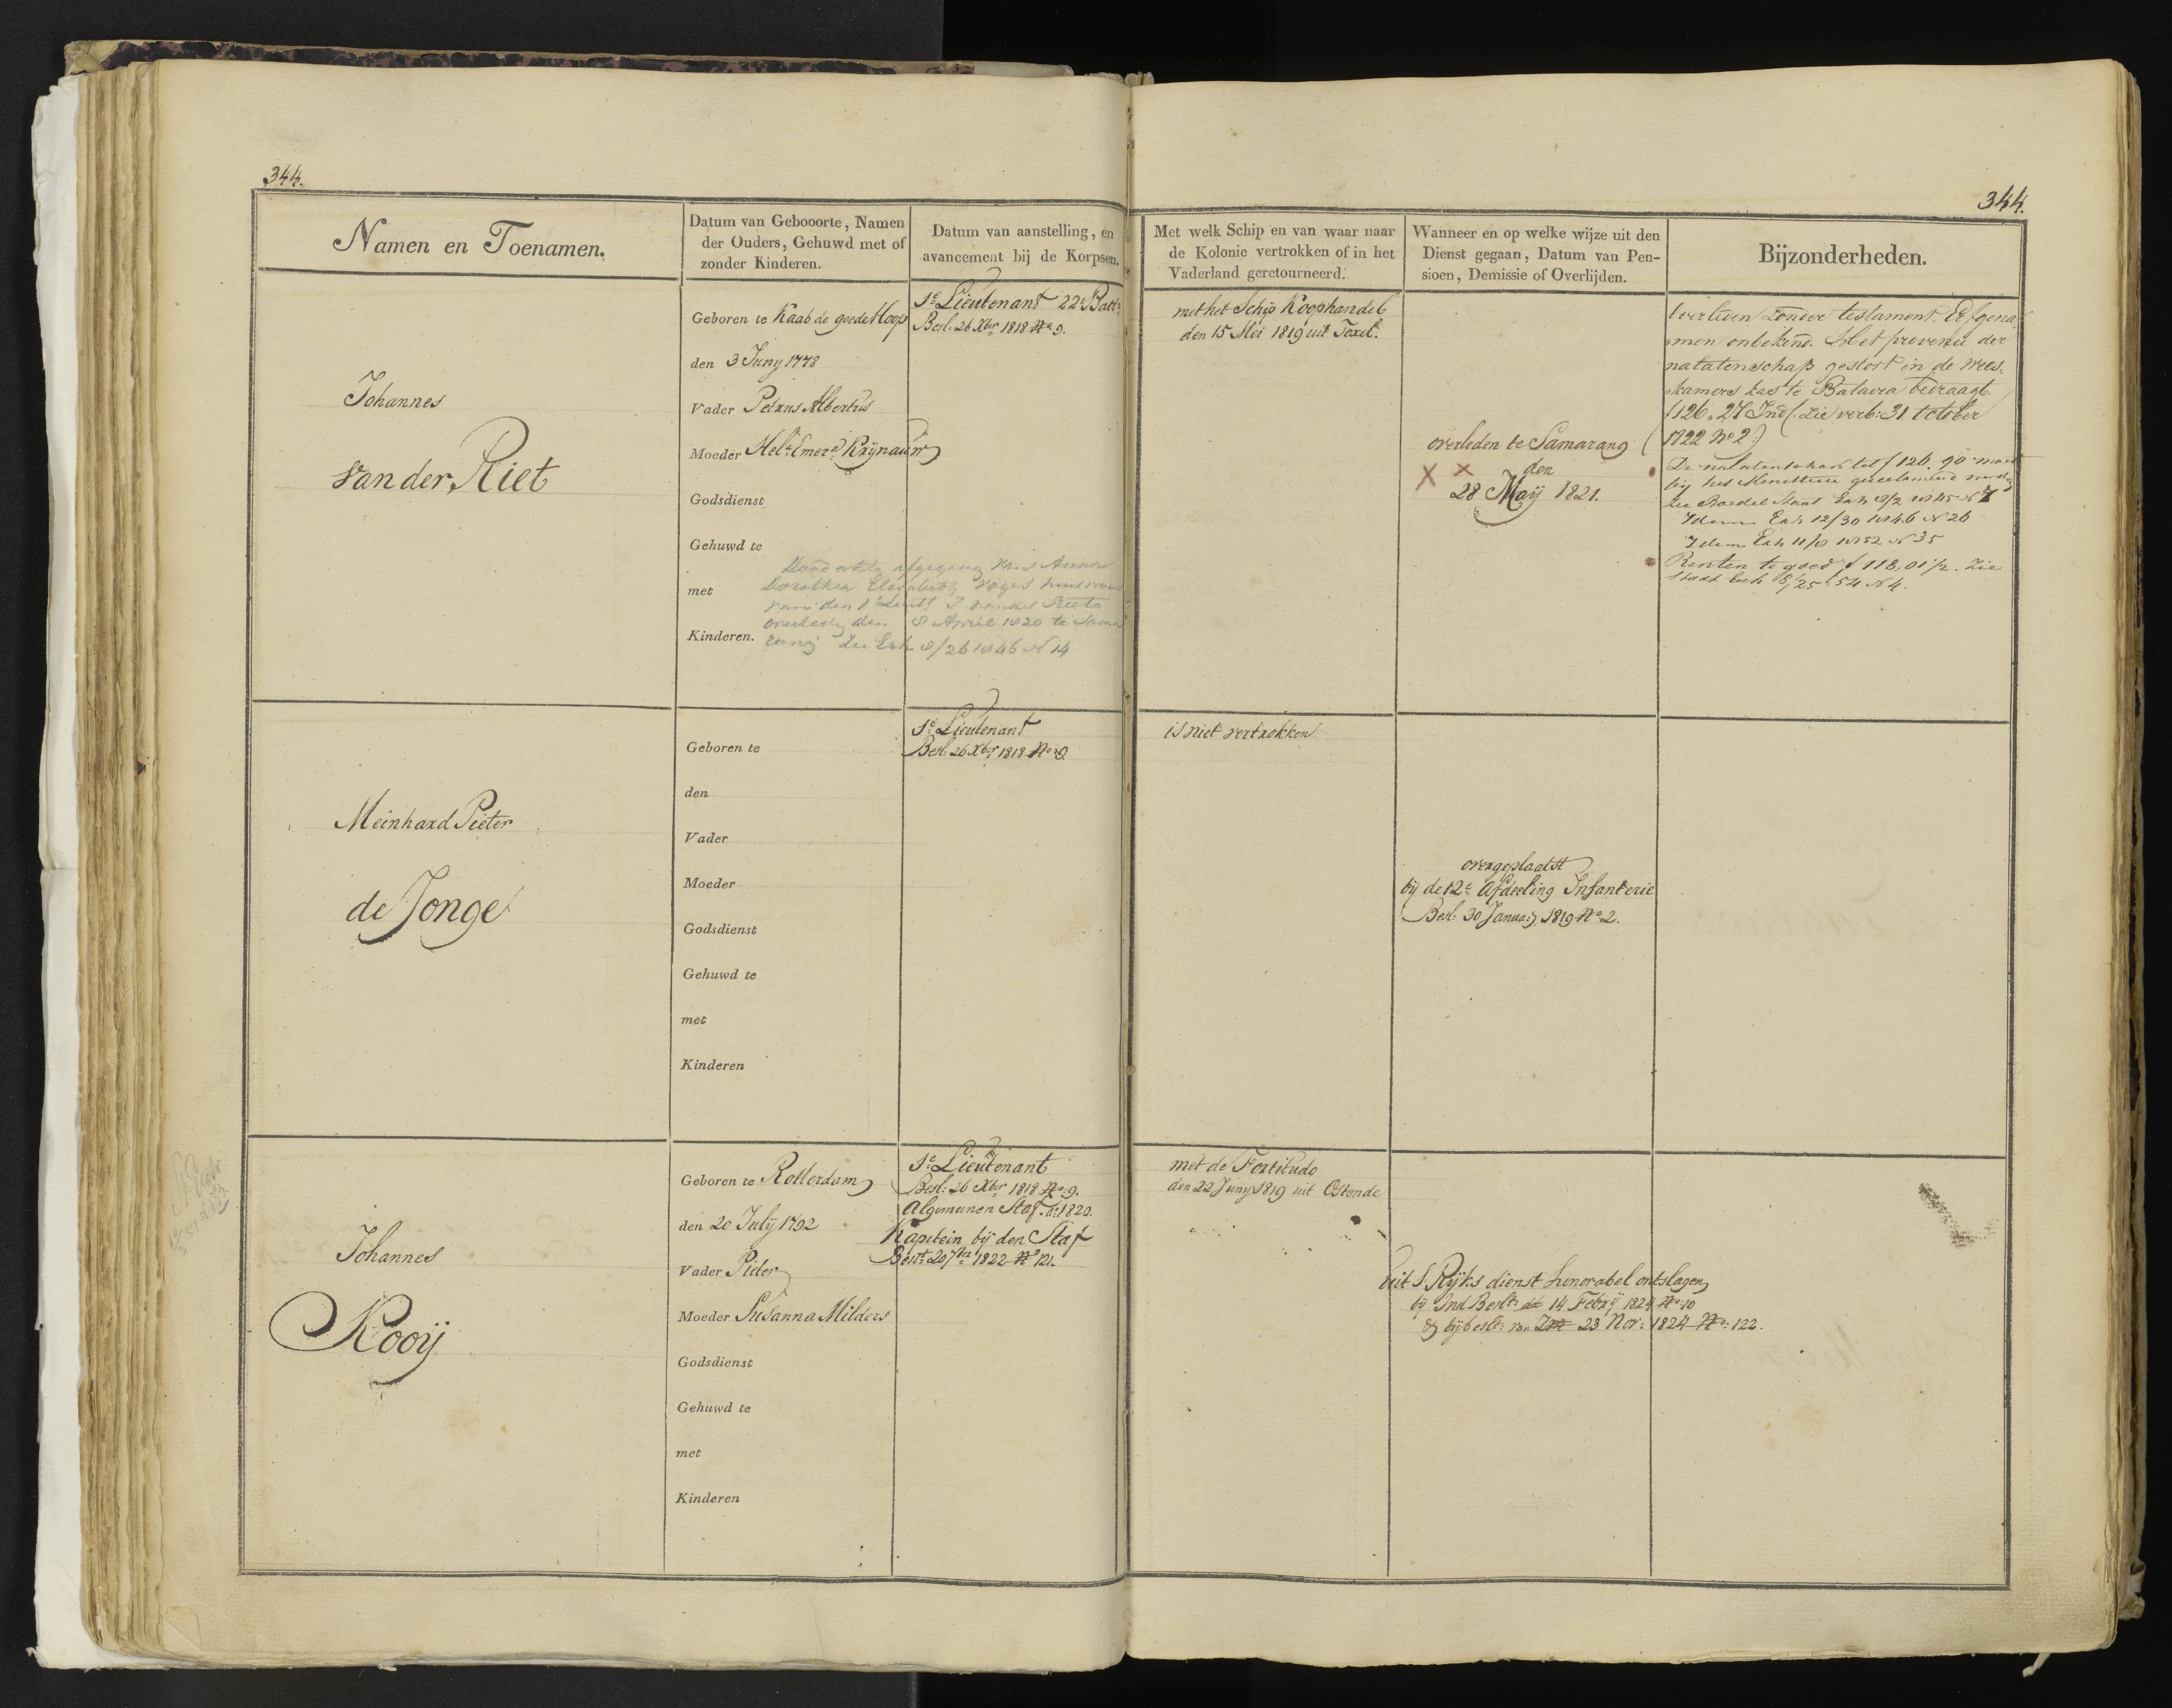 344.
344.
Namen en Toenamen.
Datum van Gebooorte, Namen
der Ouders, Gehuwd met of
zonder Kinderen.
Datum van aanstelling, en
avancement bij de Korpsen.
Met welk Schip en van waar naar
de Kolonie vertrokken of in het
Vaderland geretourneerd.
Wanneer en op welke wijze uit den
Dienst gegaan, Datum van Pen-
sioen, Demissie of Overlijden.
Bijzonderheden.
Johannes
van der Riet
Geboren te Kaab de goede Hoop
den 3 Juny 1778
Vader Petrus Albertus
Moeder Hela Emera Krynauw
Godsdienst
Gehuwd te
met
Kinderen.
Dorothea Elisabeth Voges huisvrouw
overleden den 8 April 1820 te Sama
rang Zie Exh 8/26 1846 N 14
1e Lieutenant 22e Batt:
Besl: 26 Xber 1818 No 9.
met het Schip Koophandel
den 15 Mei 1819 uit Texel.
overleden te Samarang
den
28 Maÿ 1821.
Overleden zonder testament. Erfgena-
men onbekend. Het provenu der
nalatenschap gestort in de Wees-
kamers kas te Batavia bedraagt
f 126.27 Ind (Zie verb: 31 October
1822 No 2.)
De nalatenschap tot f 126.90
bij het Ministerie gereclameerd worden
Zie Boedel Staat Exh 8/2 1845 N 7
Idem Exh 12/30 1846 N 26
Idem Exh 11/8 1852 N 35
Renten te goed f 118,01½. Zie
Staat Exh 8/25 54 N 4.
Meinhard Pieter
de Jonge
Geboren te
den
Vader
Moeder
Godsdienst
Gehuwd te
met
Kinderen
1e Lieutenant
Besl: 26 Xber 1818 No 9.
is niet vertrokken
overgeplaatst
bij de 12e Afdeeling Infanterie
Besl: 30 Januarij 1819 No 2.
Johannes
Kooij
Geboren te Rotterdam
den 20 Julij 1792
Vader Pieter
Moeder Susanna Milders
Godsdienst
Gehuwd te
met
Kinderen
1e Lieutenant
Besl: 26 Xber 1818 No 9.
Algemeenen Staf. 1820.
Kapitein bij den Staf
Beslt 20 7br 1822 No 121.
met de Fortitudo
den 22 Juny 1819 uit Ostende
uit S Rijks dienst honorabel ontslagen
bij Ind Beslt: dd 14 Febrij 1824 No 10
& bij beslt: van 23 Nov: 1824 No 122.